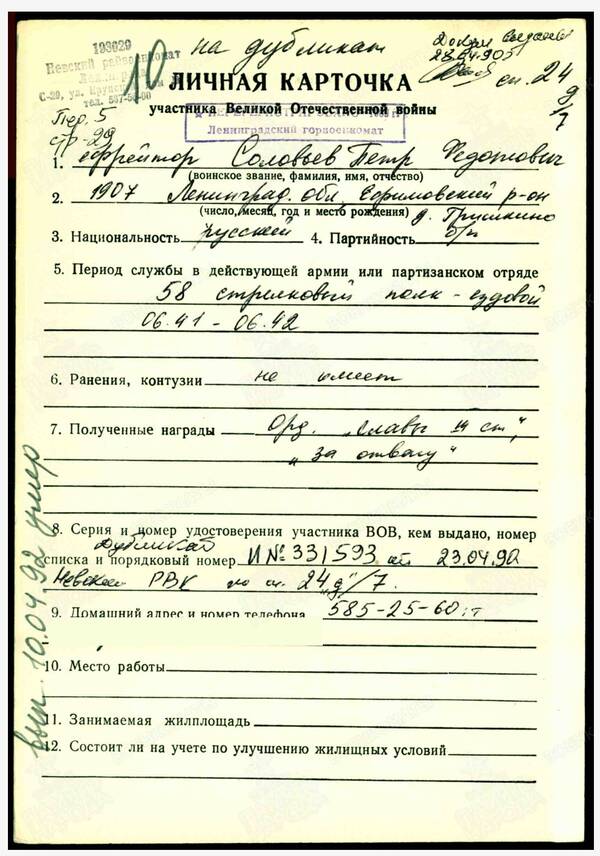 193029
Невский райвоенкомат
Ленинград
С-29, ул. Крупской
тел. 567-50-00
10 на дубликат
23.04.90г.
сп. 24 д/7
ЛИЧНАЯ КАРТОЧКА
участника Великой Отечественной войны
ПЕРЕРЕГИСТРИРОВАНО
Ленинградский горвоенкомат
Пер. 5
стр 29
1. ефрейтор Соловьев Петр Федотович
(воинское звание, фамилия, имя, отчество)
2. 1907 Ленинград. обл. Ефимовский р-он
(число, месяц, год и место рождения) д. Гришкино
3. Национальность русский 4. Партийность б/п
5. Период службы в действующей армии или партизанском отряде
58 стрелковый полк - ездовой
06.41 - 06.42
6. Ранения, контузии не имеет
7. Полученные награды Орд. „Славы III ст",
„За отвагу"
8. Серия и номер удостоверения участника ВОВ, кем выдано, номер
Дубликат
списка и порядковый номер И № 331593 от 23.04.90
Невским РВК по сп. 24 „д"/7.
9. Домашний адрес и номер телефона 585-25-60
10. Место работы
11. Занимаемая жилплощадь
12. Состоит ли на учете по улучшению жилищных условий
вып. 10.04.92 умер